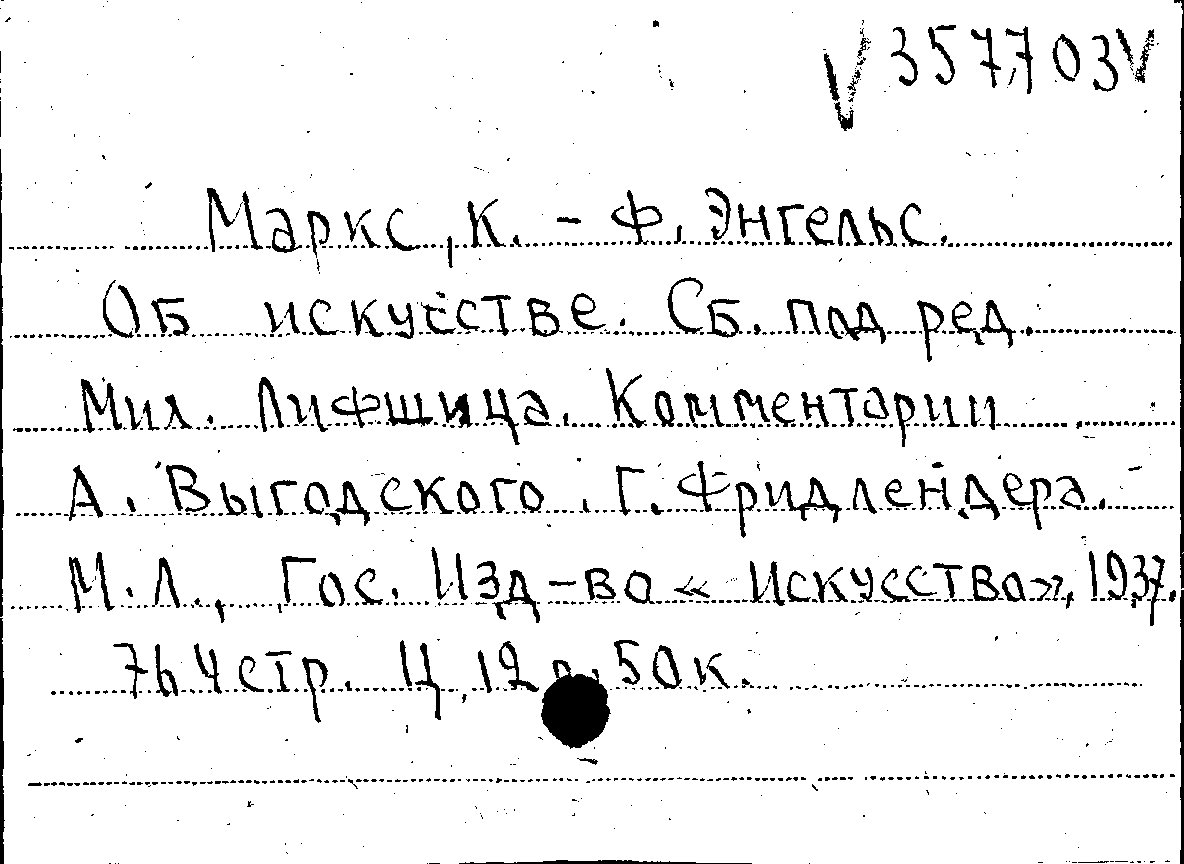 V 357703 V
Маркс, К. – Ф. Энгельс.
Об искусстве. Сб. под ред.
Мих. Лифшица. Комментарии
А. Выгодского. Г. Фридлендера.
М.Л., Гос. Изд-во « Искусство», 1937.
764 стр. Ц. 12 р. 50 к.